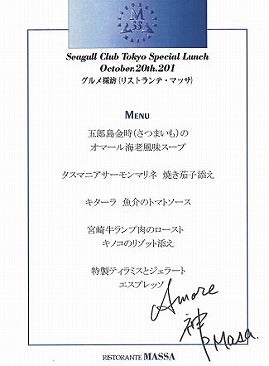 M
Seagull Club Tokyo Special Lunch
October.20th.201
グルメ探訪(リストランテ・マッサ)
MENU
五郎島金時(さつまいも)の
オマール海老風味スープ
タスマニアサーモンマリネ 焼き茄子添え
キターラ 魚介のトマトソース
宮崎牛ランプ肉のロースト
キノコのリゾット添え
特製ティラミスとジェラート
エスプレッソ
Amore
神戸Masa.
RISTORANTE MASSA